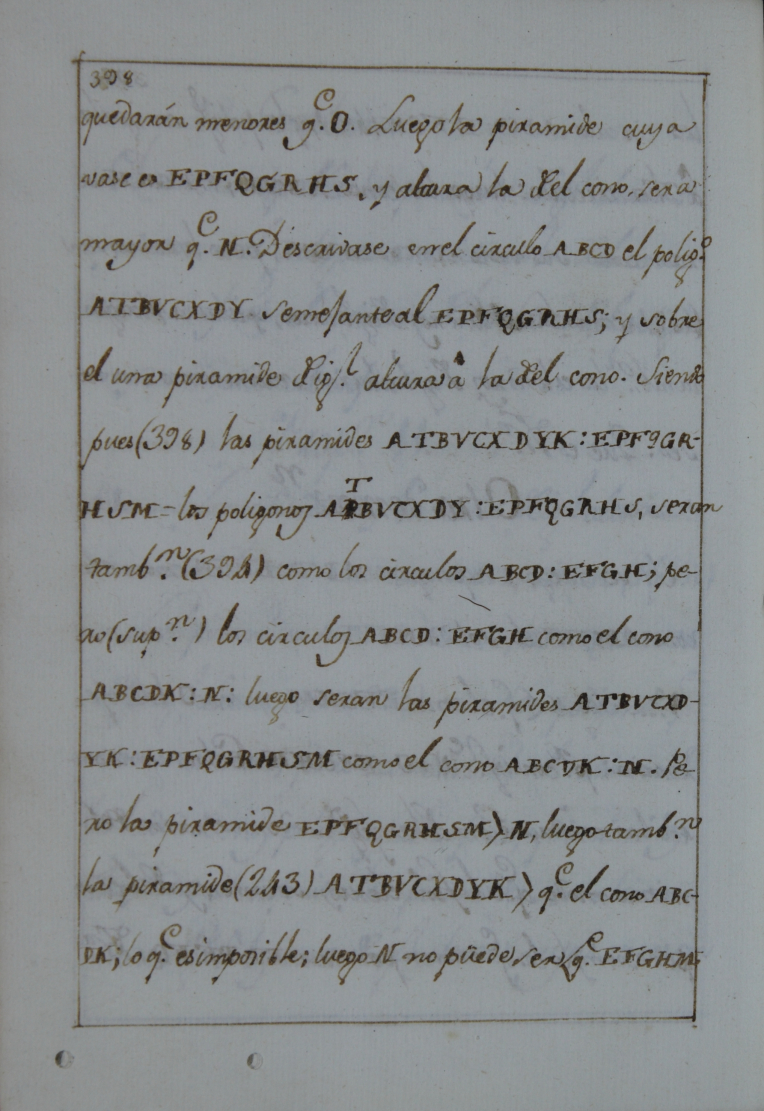 398
quedarán menores q.e O. Luego la piramide cuya
vase es EPFQGRHS, y altura la del cono, sera
mayor q.e N. Descrivase en el circulo ABCD el polig.o
ATBVCXDY semejante al EPFQGRHS; y sobre
el una piramide de ig.l altura à la del cono. Siendo
pues (398) las piramides ATBVCXDYK : EPFQGR-
HSM = los poligonos ATBVCXDY : EPFQGRHS, seran
tamb.n (394) como los circulos ABCD : EFGH; pe-
ro (sup.n) los circulos ABCD : EFGH como el cono
ABCDK : N : luego seran las piramides ATBVCXD-
YK : EPFQGRHSM como el cono ABCDK : N. Pe-
ro la piramide EPFQGRHSM > N, luego tamb.n
la piramide (243) ATBVCXDYK > q.e el cono ABC-
DK; lo q.e es imposible; luego N no püede ser < q.e EFGHM;